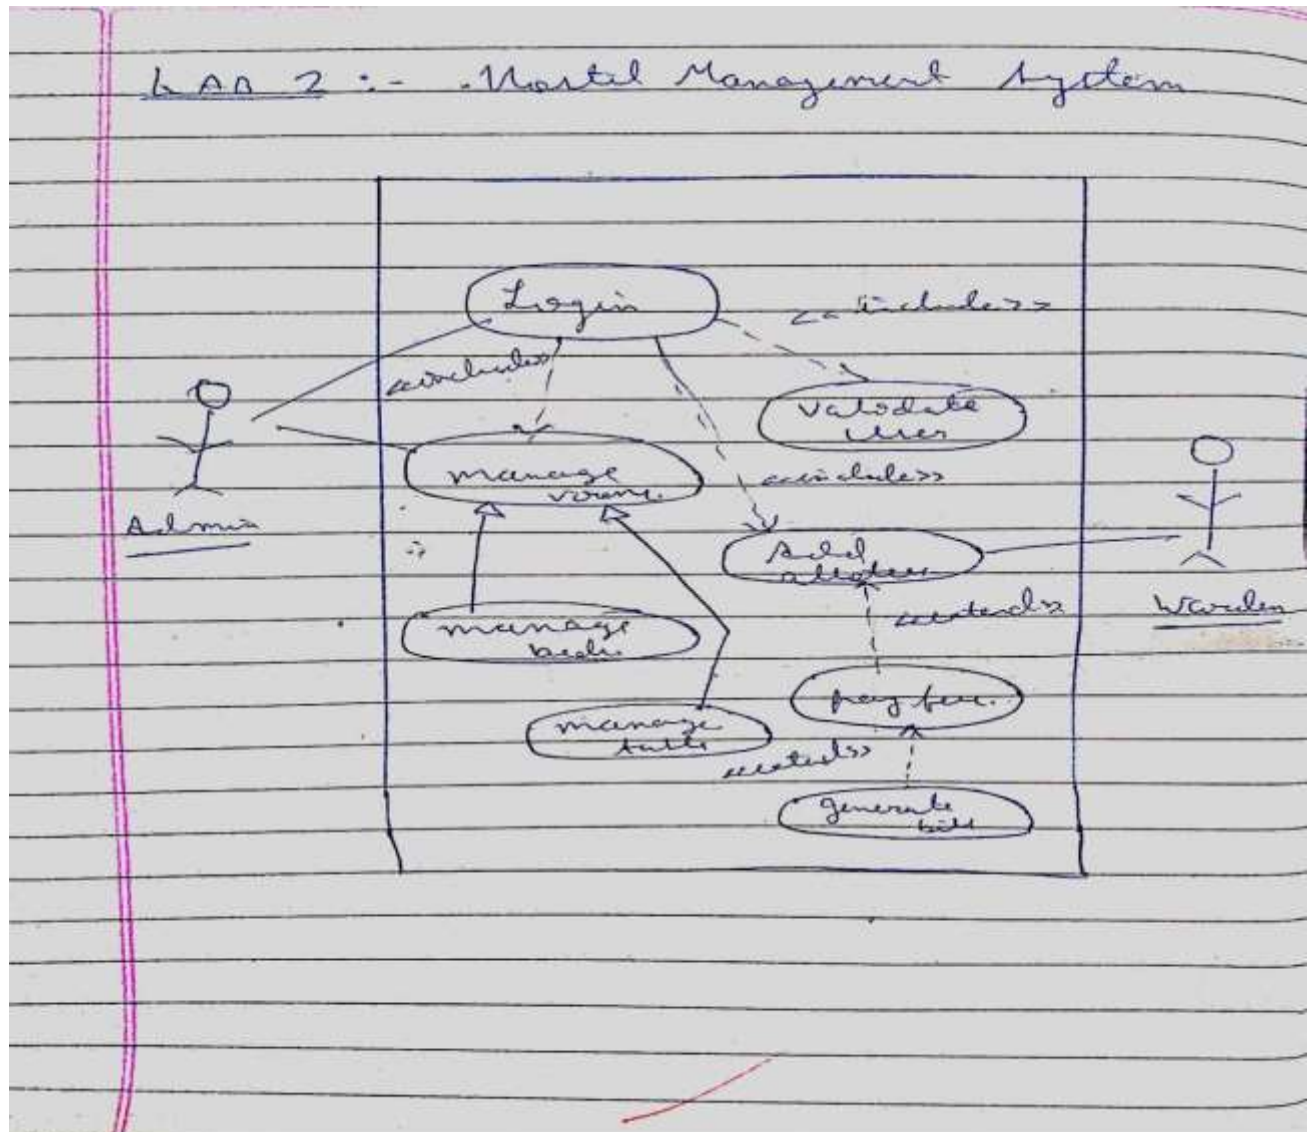 LAB 2 :- Hostel Management System
Login
<<include>>
<<include>>
validate
user
manage
rooms
<<include>>
Admin
Add
Warden
<<extend>>
manage
beds
pay fee
manage
table
<<extend>>
generate
bill